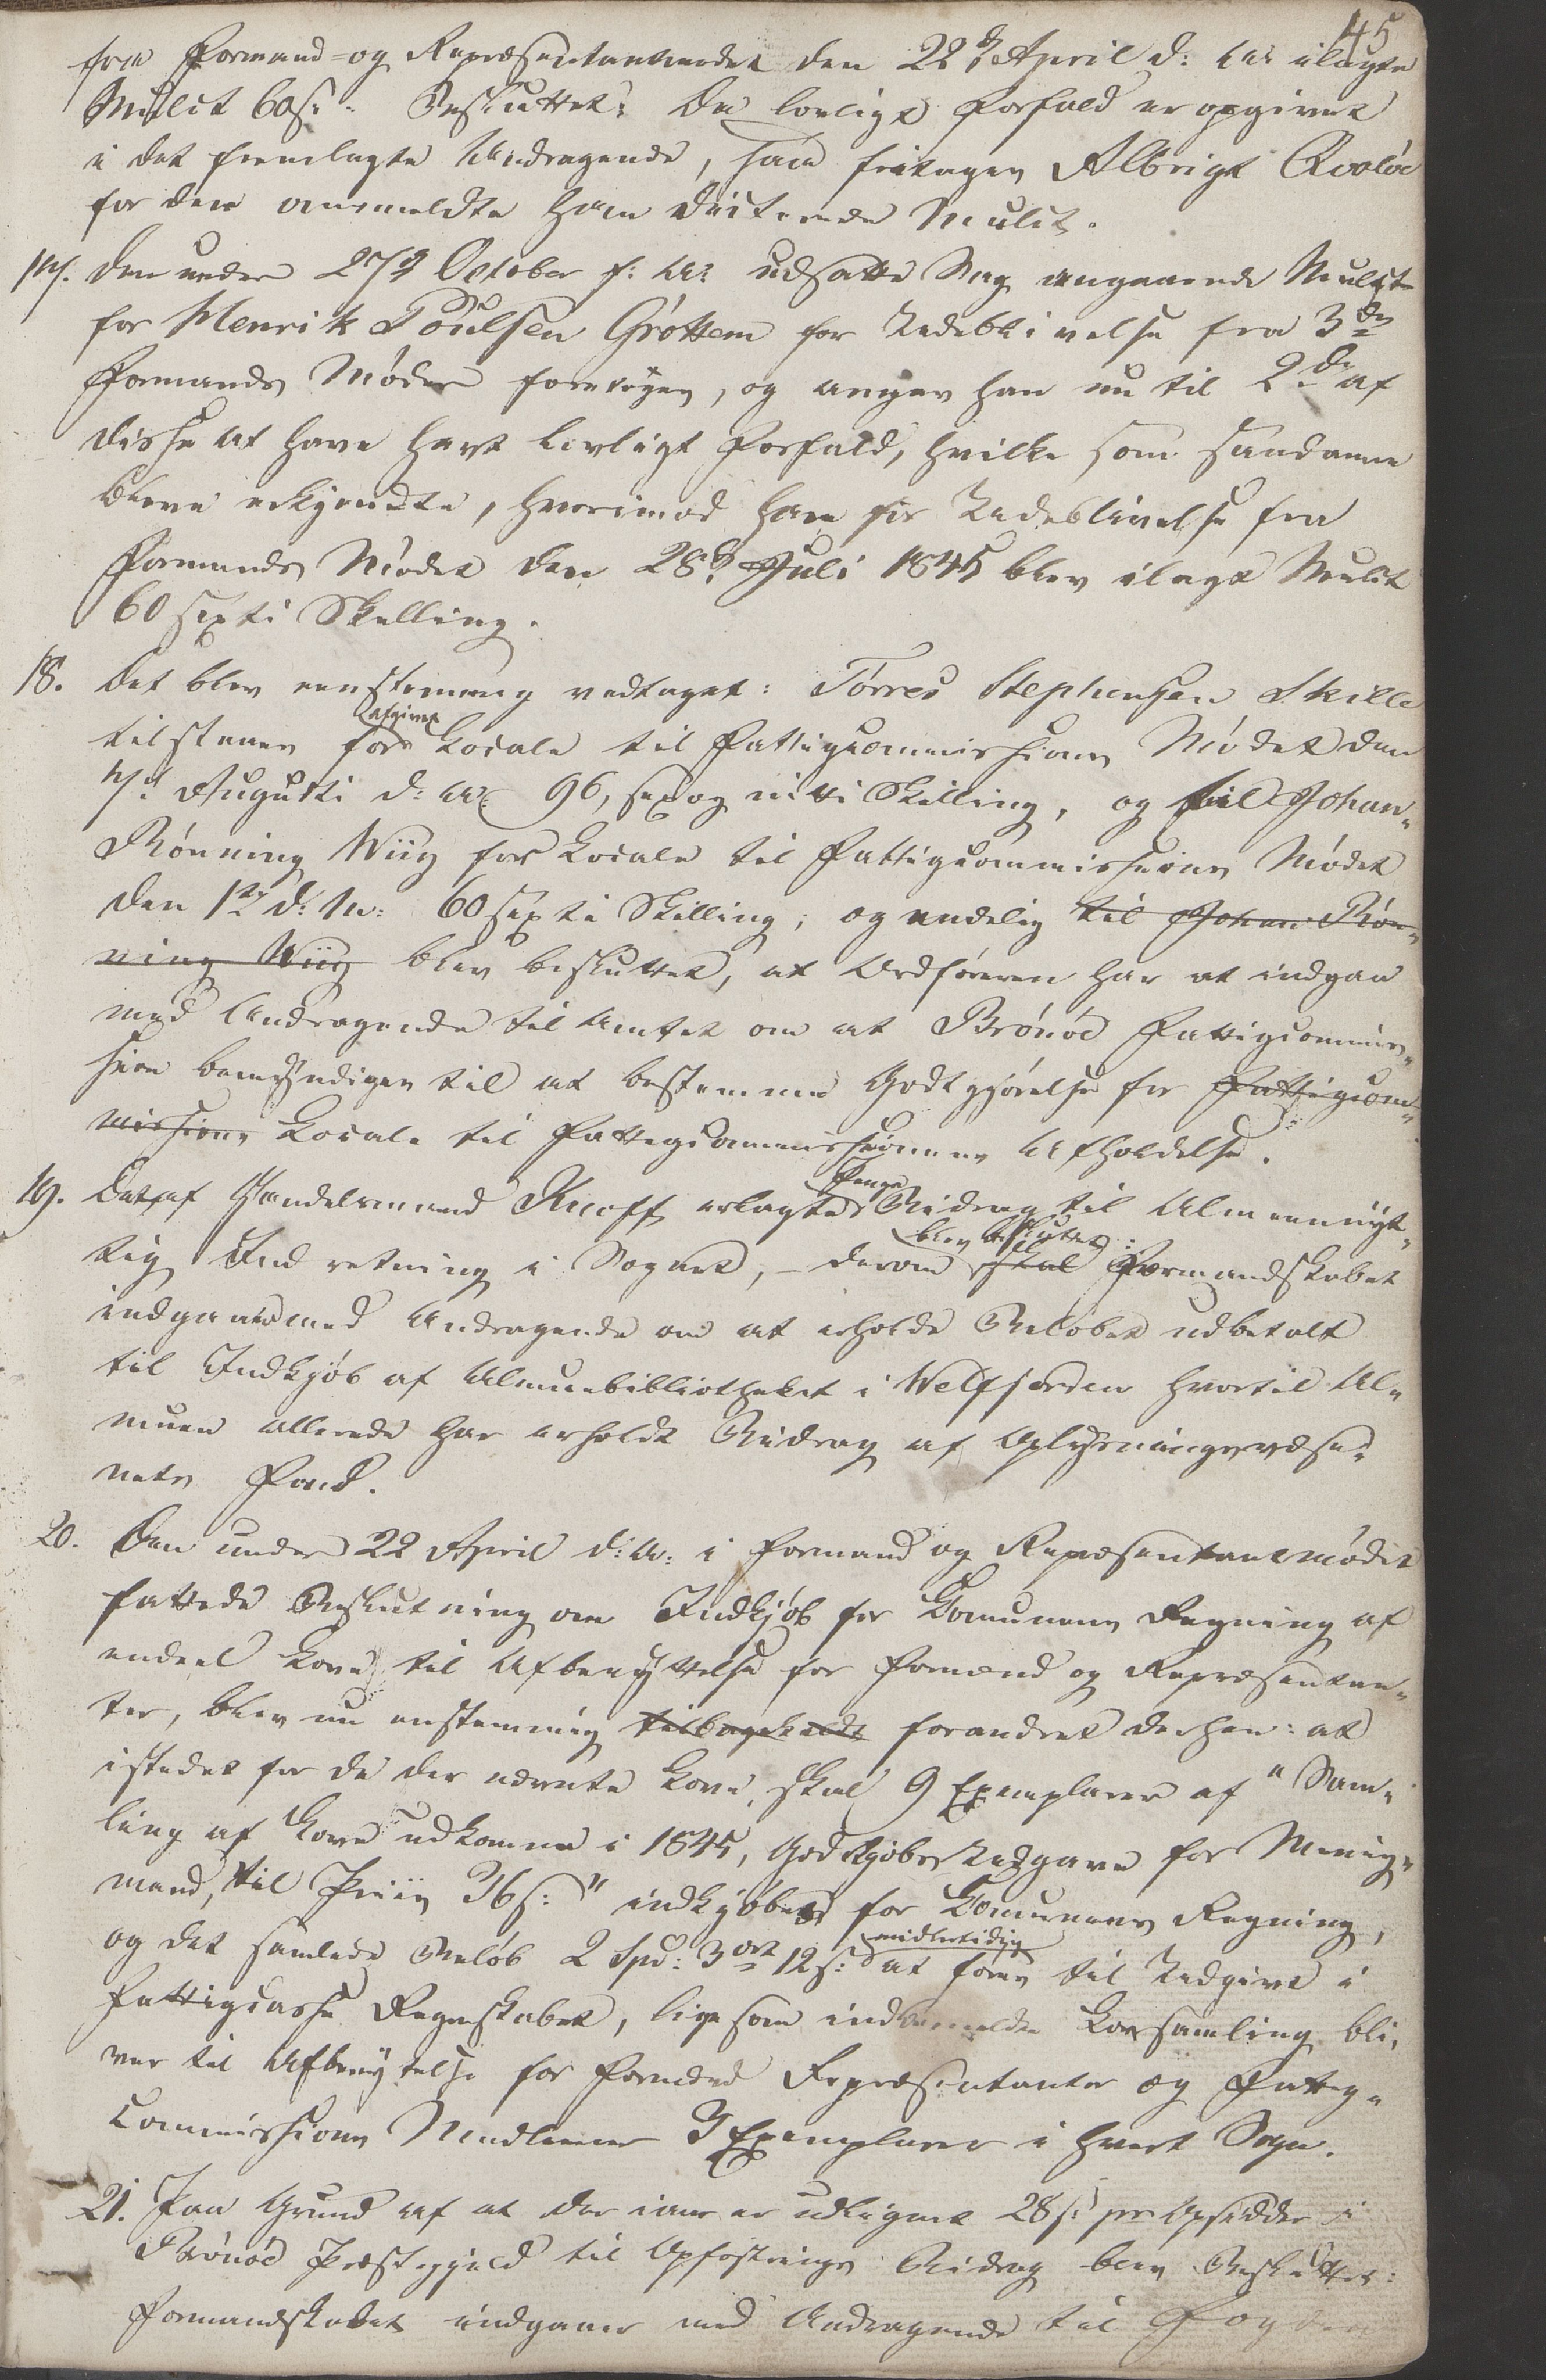 45
fra Formand- og Repræsentantmødet den 22d April d: Ar ilagte
Mulct 60 s: Besluttet: Da lovligt Forfald er opgivet
i det fremlagte Andragende, saa fritages Albrigt Qvaløe
for den anmeldte ham dicterede Mulct.
17. Den under 27d October f: Ar: udsatte Sag angaaende Mulcter
for Henrik Poulsen Grøttem for Udeblivelse fra 3de
Formands Møder foretoges, og angav han nu til 2de af
disse at have havt lovligt Forfald, hvilke som saadanne
bleve erkjendte, hvorimod han for Udeblivelse fra
Formands Mødet den 28d Juli 1845 blev ilagt Mulct
60 sexti Skilling.
18. Det blev eenstemmig vedtaget: Tørres Stephensen Skille
tilstaaes for afgivet Locale til Fattigcommissions Mødet den
7d Augusti d: Ar 96, sex og nitti Skilling, og til Johan
Rønning Wiig for Locale til Fattigcommissions Mødet
den 1ste d: M: 60 sexti Skilling; og endelig til Johan Røn-
ning Wiig blev besluttet, at Ordføreren har at indgaae
med Andragende til Amtet om at Brønøe Fattigcommis-
sion bemyndiges til at bestemme Godtgjørelse for Fattigcom-
missions Locale til Fattigcommissionernes Afholdelse.
19. Det af Handelsmand Knoff erlagte Penge Bidrag til Almeennyt-
tig Indretning i Sognet, – derom blev besluttet: skal Formandskabet
indgaaer med Andragende om at erholde Beløbet udbetalt
til Indkjøb af Almuebibliotheket i Welfjorden hvortil Al-
muen allerede har erholdt Bidrag af Oplysningsvæse-
nets Fond.
20. Den under 22 April d: A: i Formand og Repræsentantmødet
fattede Beslutning om Indkjøb for Communens Regning af
endeel Love til Afbenyttelse for Formænd og Repræsentan-
ter, blev nu enstemmig tilbagekaldt forandret derhen: at
istedet for de der nævnte Love, skal 9 Exemplarer af "Sam-
ling af Love udkomne i 1845, Godtkjøbs Udgave for Menig-
mand, til Priis 36 s:" indkjøbes for Communens Regning,
og det samlede Beløb 2 Spd: 3 ort 12 s: midlertidig at føres til Udgivt i
Fattigcasse Regnskabet, ligesom indbemeldte Lovsamling bli-
ver til Afbenyttelse for Formænd Repræsentanter og Fattig-
Commissions Medlemmer 3 Exemplarer i hvert Sogn.
21. Paa Grund af at der iaar er udlignet 28 s: pr Opsidder i
Brønøe Præstegjeld til Opfostrings Bidrag blev Besluttet:
Formandskabet indgaaer med Andragende til Fogden